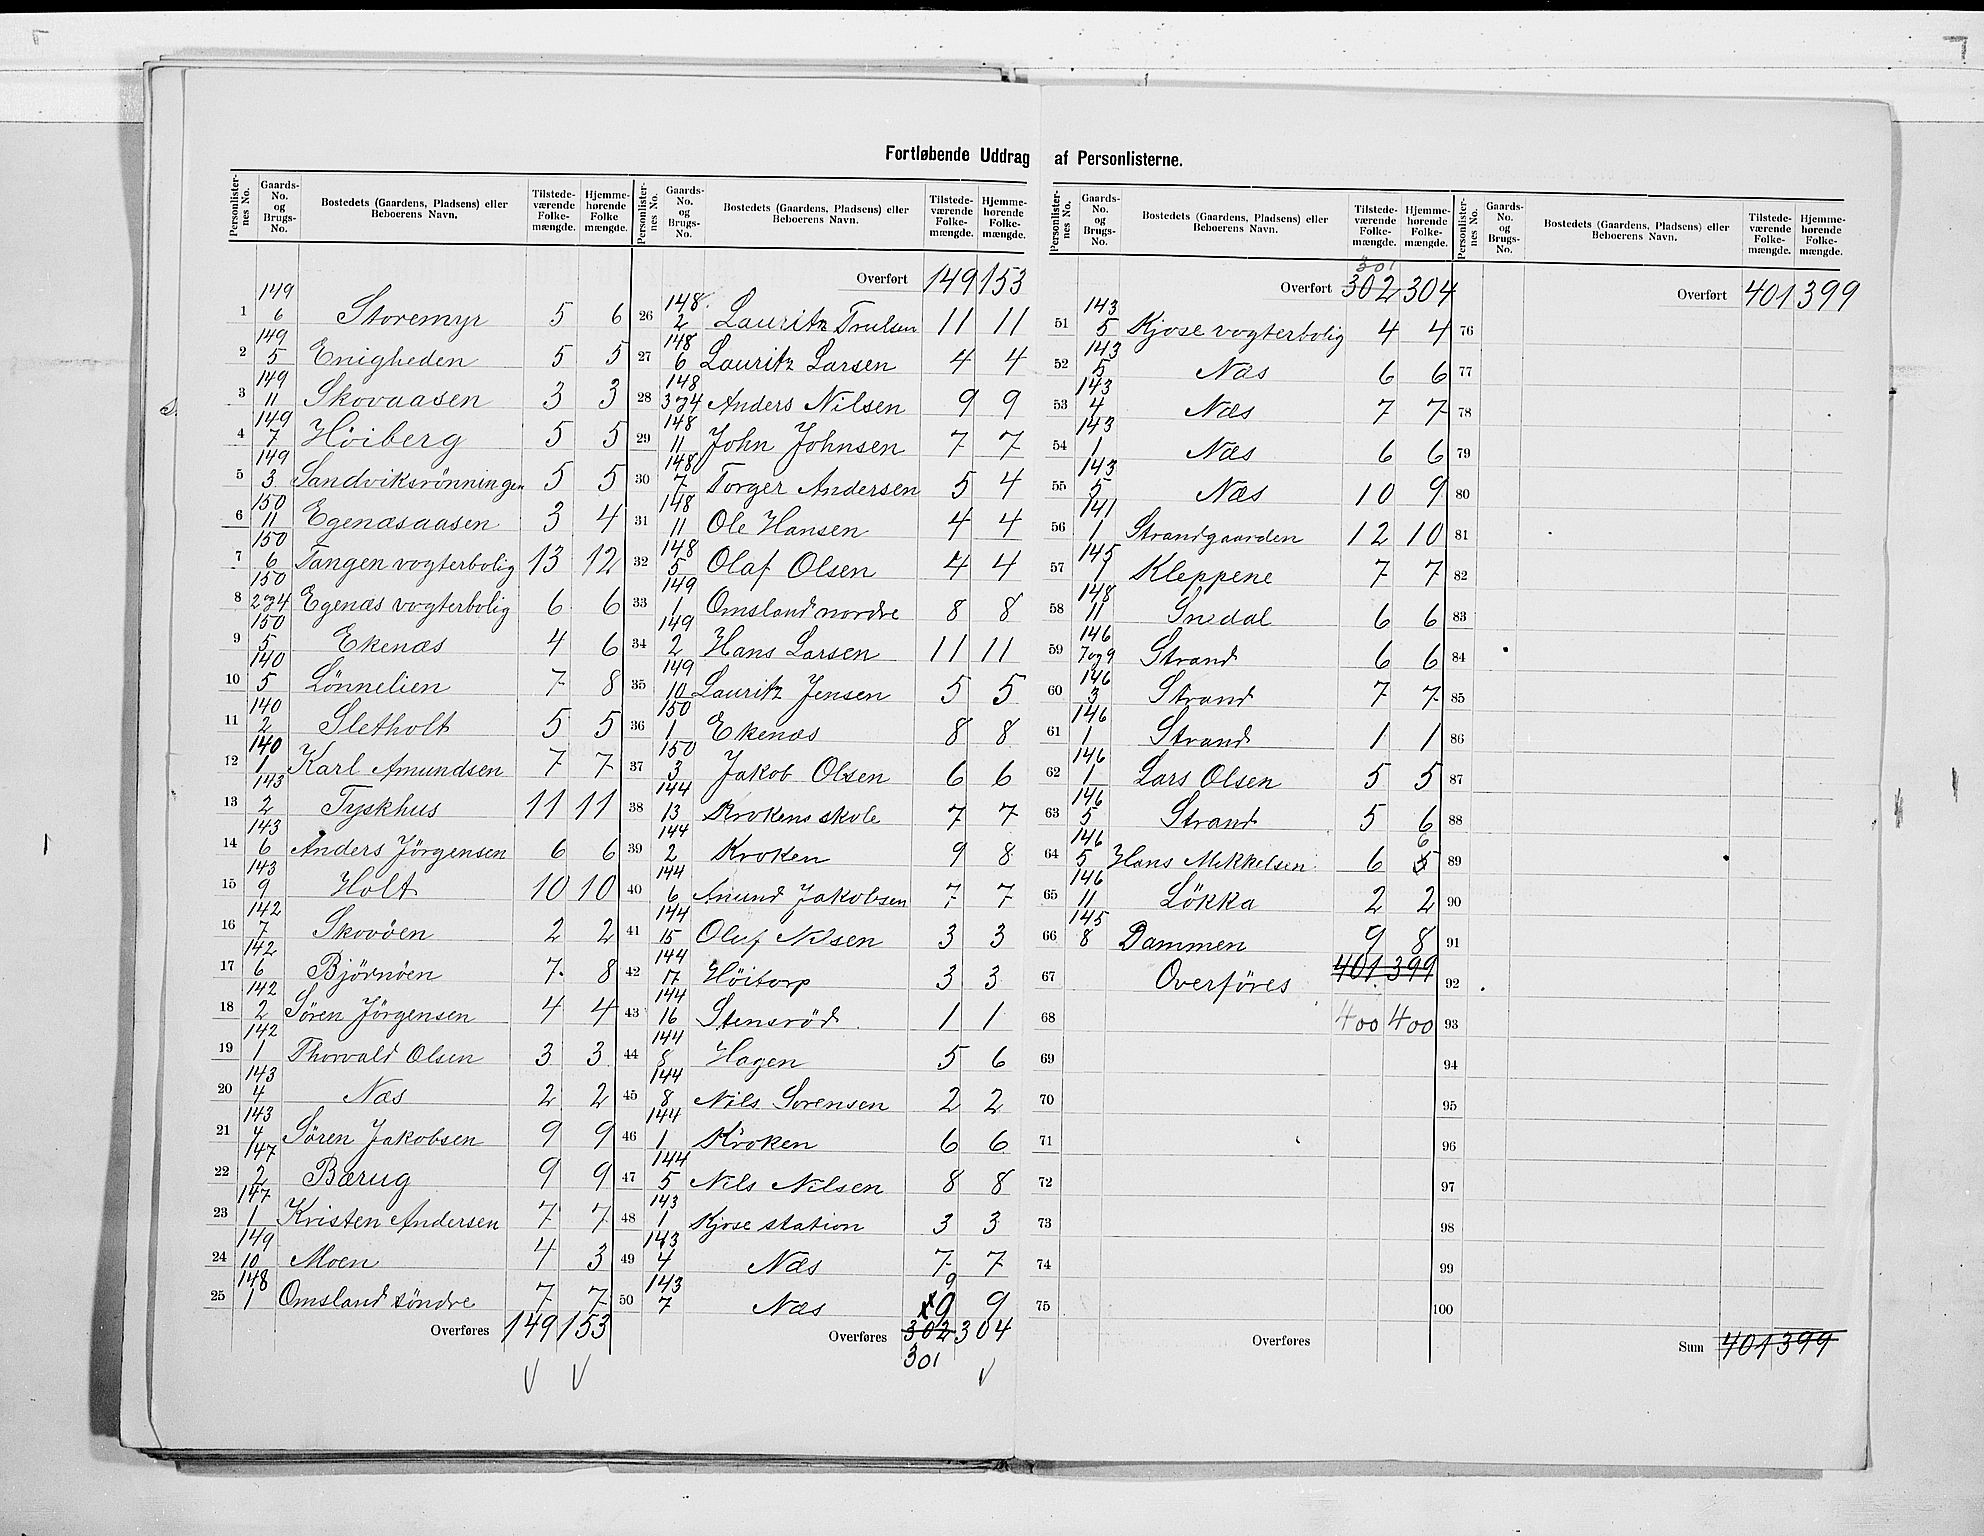 Fortløbende Uddrag af Personlisterne.
Personlisternes No. | Gaards-No. og Brugs-No. | Bostedets (Gaardens, Pladsens) eller Beboerens Navn. | Tilstedeværende Folkemængde. | Hjemmehørende Folkemængde.
1 | 149 6 | Storemyr | 5 | 6
2 | 149 5 | Enigheden | 5 | 5
3 | 149 11 | Skovaasen | 3 | 3
4 | 149 7 | Höiberg | 5 | 5
5 | 149 3 | Sandviksrønningen | 5 | 5
6 | 150 11 | Egenæsaasen | 3 | 4
7 | 150 6 | Tangen vogterbolig | 13 | 12
8 | 150 2og4 | Egenæs vogterbolig | 6 | 6
9 | 150 5 | Ekenæs | 4 | 6
10 | 140 5 | Lønnelien | 7 | 8
11 | 140 2 | Sletholt | 5 | 5
12 | 140 1 | Karl Amundsen | 7 | 7
13 | 143 2 | Tyskhus | 11 | 11
14 | 143 6 | Anders Jörgensen | 6 | 6
15 | 143 9 | Holt | 10 | 10
16 | 142 7 | Skovöen | 2 | 2
17 | 142 6 | Bjørnöen | 7 | 8
18 | 142 2 | Sören Jörgensen | 4 | 4
19 | 142 1 | Thorvald Olsen | 3 | 3
20 | 143 4 | Næs | 2 | 2
21 | 143 4 | Søren Jakobsen | 9 | 9
22 | 147 2 | Bærug | 9 | 9
23 | 147 1 | Kristen Andersen | 7 | 7
24 | 149 10 | Moen | 4 | 3
25 | 148 1 | Omsland söndre | 7 | 7
Overføres 149 153
Personlisternes No. | Gaards-No. og Brugs-No. | Bostedets (Gaardens, Pladsens) eller Beboerens Navn. | Tilstedeværende Folkemængde. | Hjemmehørende Folkemængde.
Overført 149 153
26 | 148 2 | Lauritz Trulsen | 11 | 11
27 | 148 6 | Lauritz Larsen | 4 | 4
28 | 148 3og4 | Anders Nilsen | 9 | 9
29 | 148 11 | John Johnsen | 7 | 7
30 | 148 7 | Torger Andersen | 5 | 4
31 | 148 11 | Ole Hansen | 4 | 4
32 | 148 5 | Olaf Olsen | 4 | 4
33 | 149 1 | Omsland nordre | 8 | 8
34 | 149 2 | Hans Larsen | 11 | 11
35 | 149 10 | Lauritz Jensen | 5 | 5
36 | 150 1 | Ekenæs | 8 | 8
37 | 150 3 | Jakob Olsen | 6 | 6
38 | 144 13 | Krokens skole | 7 | 7
39 | 144 2 | Kroken | 9 | 8
40 | 144 6 | Amund Jakobsen | 7 | 7
41 | 144 15 | Oluf Nilsen | 3 | 3
42 | 144 17 | Höitorp | 3 | 3
43 | 144 16 | Stensröd | 1 | 1
44 | 144 8 | Hagen | 5 | 6
45 | 144 8 | Nils Sorensen | 2 | 2
46 | 144 1 | Kroken | 6 | 6
47 | 144 5 | Nils Nilsen | 8 | 8
48 | 143 1 | Kjose station | 3 | 3
49 | 143 4 | Næs | 7 | 7
50 | 143 7 | Næs | 9 9 | 9
Overføres 302 304
301
Personlisternes No. | Gaards-No. og Brugs-No. | Bostedets (Gaardens, Pladsens) eller Beboerens Navn. | Tilstedeværende Folkemængde. | Hjemmehørende Folkemængde.
301
Overført 302 304
51 | 143 5 | Kjose vogterbolig | 4 | 4
52 | 143 5 | Næs | 6 | 6
53 | 143 4 | Næs | 7 | 7
54 | 143 1 | Næs | 6 | 6
55 | 143 5 | Næs | 10 | 9
56 | 141 1 | Strandgaarden | 12 | 10
57 | 145 1 | Kleppene | 7 | 7
58 | 148 11 | Snedal | 6 | 6
59 | 146 7og9 | Strand | 6 | 6
60 | 146 3 | Strand | 7 | 7
61 | 146 1 | Strand | 1 | 1
62 | 146 1 | Lars Olsen | 5 | 5
63 | 146 5 | Strand | 5 | 6
64 | 146 5 | Hans Mikkelsen | 6 | 6 5
65 | 146 11 | Lökka | 2 | 2
66 | 145 8 | Dammen | 9 | 8
67 | Overföres | 401 | 399
68 | 400 | 400
69
70
71
72
73
74
75
Overføres
Personlisternes No. | Gaards-No. og Brugs-No. | Bostedets (Gaardens, Pladsens) eller Beboerens Navn. | Tilstedeværende Folkemængde. | Hjemmehørende Folkemængde.
Overført 401 399
76
77
78
79
80
81
82
83
84
85
86
87
88
89
90
91
92
93
94
95
96
97
98
99
100
Sum 401 399